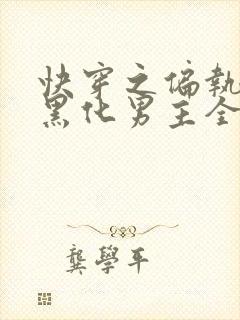 快穿之偏執
黑化男主全
龔學平